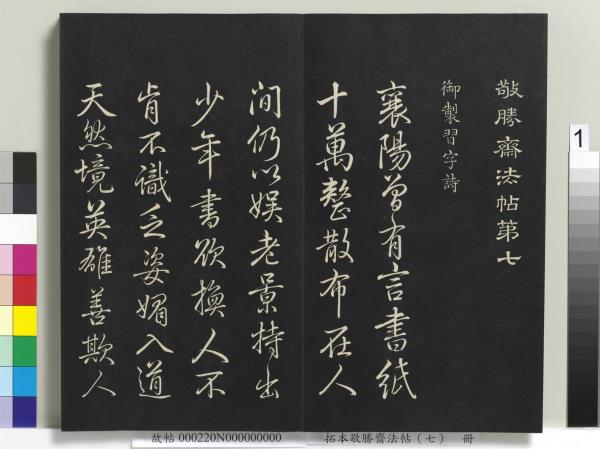 敬勝齋法帖第七
御製習字詩
襄陽曾有言書紙
十萬整散布在人
間仍以娱老景持出
少年書欲換人不
肯不識乏姿媚入道
天然境英雄善欺人
1
故帖 000220N000000000 拓本敬勝齋法帖（七） 冊